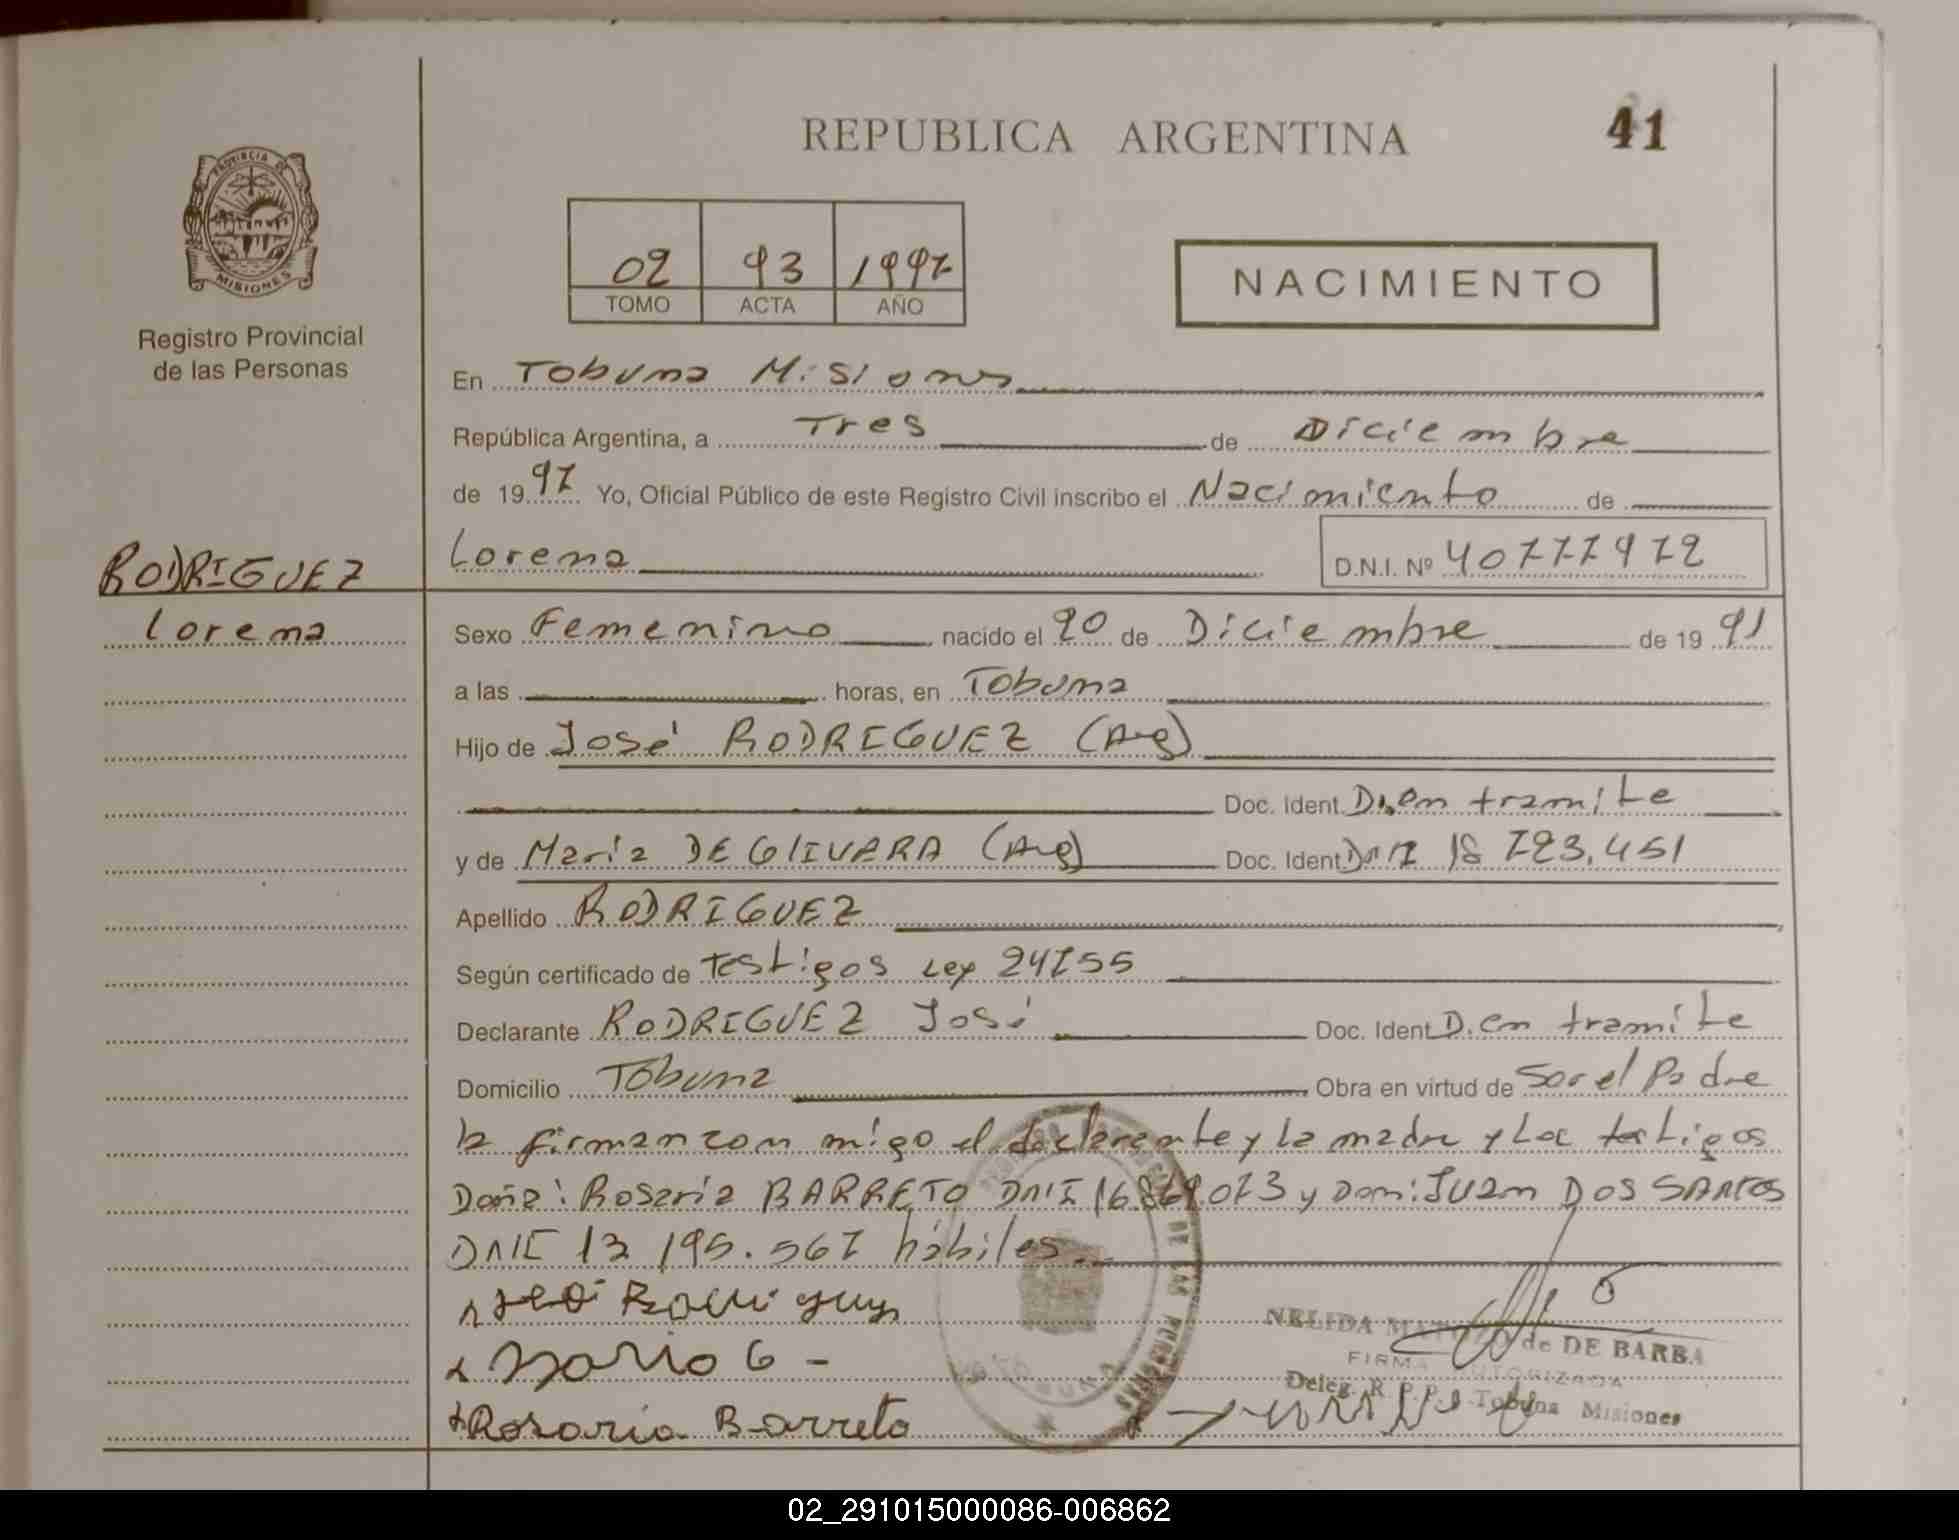 REPUBLICA ARGENTINA
41
PROVINCIA DE
MISIONES
Registro Provincial
de las Personas
02 93 1997
TOMO ACTA AÑO
NACIMIENTO
En Tobuna Misiones
República Argentina, a Tres de Diciembre
de 1997 Yo, Oficial Público de este Registro Civil inscribo el Nacimiento de
Lorena D.N.I. Nº 40777972
RODRIGUEZ
Lorena
Sexo Femenino nacido el 20 de Diciembre de 1991
a las horas, en Tobuna
Hijo de José RODRIGUEZ (Arg)
Doc. Ident. D. en tramite
y de Maria DE OLIVERA (Arg) Doc. Ident DNI 18 723.451
Apellido RODRIGUEZ
Según certificado de Testigos Ley 24755
Declarante RODRIGUEZ José Doc. Ident D. en tramite
Domicilio Tobuna Obra en virtud de Ser el Padre
la firman con migo el declarante y la madre y los testigos
Doña: Rosaria BARRETO DNI 16.869.073 y Don: Juan DOS SANTOS
DNI 13 195.567 hábiles.
José Rodriguez
Rosaria Barreto
NELIDA de DE BARBA
FIRMA AUTORIZADA
Deleg. R. P. P. - Tobuna Misiones
DE LAS PERSONAS
TOBUNA
02_291015000086-006862